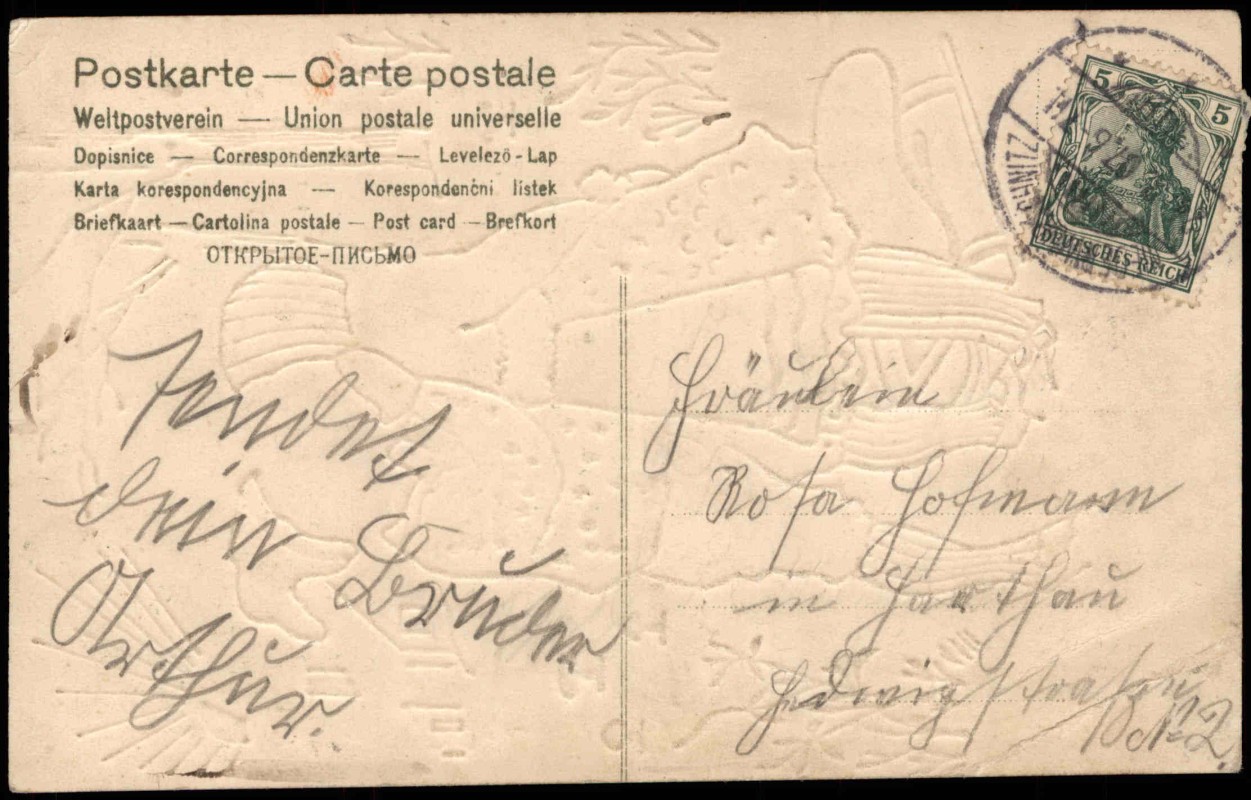 Postkarte — Carte postale
Weltpostverein — Union postale universelle
Dopisnice — Correspondenzkarte — Levelező-Lap
Karta korespondencyjna — Korespondenční lístek
Briefkaart — Cartolina postale — Post card — Brefkort
ОТКРЫТОЕ-ПИСЬМО
sendet
dein Bruder
Arthur.
5 5
DEUTSCHES REICH
Fräulein
Rosa Hofmann
in Harthau
Hedwigstraße
№ 2.